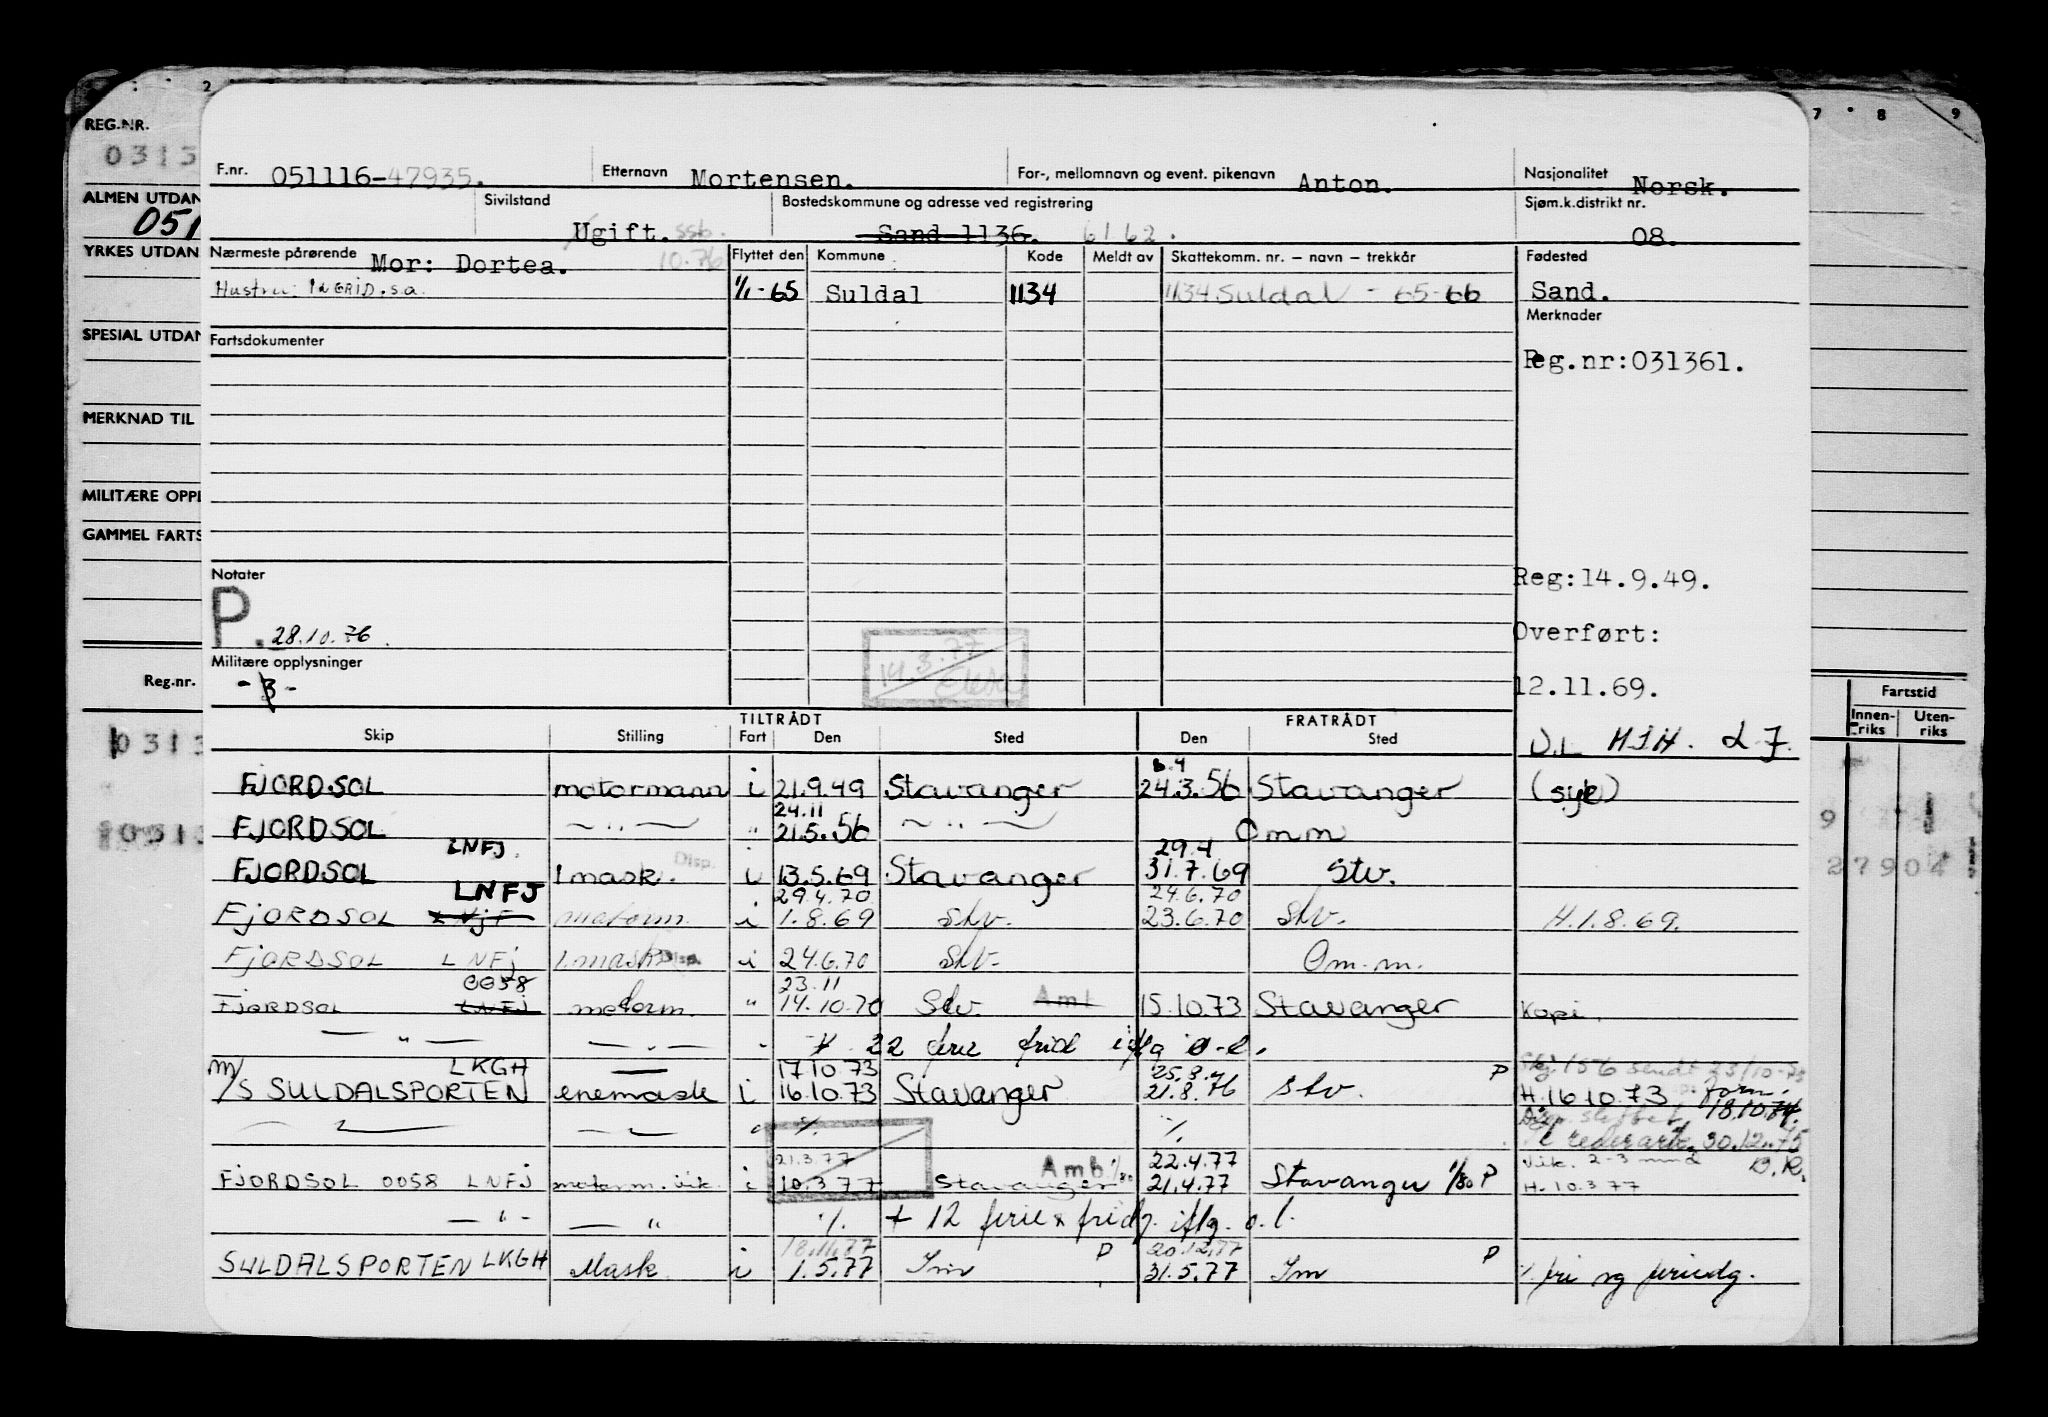 REG.NR.
0313
ALMEN UTDAN
051
YRKES UTDAN
SPESIAL UTDAN
MERKNAD TIL
MILITÆRE OPPL
GAMMEL FARTS
Reg.nr.
0313
0313
F.nr. 051116-47935. Etternavn Mortensen. For-, mellomnavn og event. pikenavn Anton. Nasjonalitet Norsk.
Sivilstand Ugift. ssb. Bostedskommune og adresse ved registrering Sand 1136. 6162. Sjøm.k.distrikt nr. 08.
Nærmeste pårørende Mor: Dortea. 10.76 Flyttet den Kommune Kode Meldt av Skattekomm. nr. – navn – trekkår Fødested
Hustru: INGRID. s.a. 1/1-65 Suldal 1134 1134 Suldal - 65-66 Sand.
Merknader
Fartsdokumenter
Reg.nr:031361.
Notater Reg:14.9.49.
P. 28.10.76 Overført:
14.3.77
Militære opplysninger
12.11.69.
TILTRÅDT FRATRÅDT
Skip Stilling Fart Den Sted Den Sted
6.4
FJORDSOL motormann i 21.9.49 Stavanger 24.3.56 Stavanger (syk)
24.11
FJORDSOL — " — " 21.5.56 — " — Omm
LNFJ. Disp. 29.4
FJORDSOL 1 mask. i 13.5.69 Stavanger 31.7.69 Stv.
LNFJ 29.4.70 24.6.70
FJORDSOL LNJF motorm. i 1.8.69 Stv. 23.6.70 Stv. H.1.8.69.
FJORDSOL LNFJ 1.mask Disp. i 24.6.70 Stv. Om.m.
0058 23.11
FJORDSOL LNFJ motorm. " 14.10.70 Stv. Aml 15.10.73 Stavanger Kopi.
— " — — " — " + 22 ferie frid iflg o-l.
LKGH 17.10.73 25.8. P
M/S SULDALSPORTEN enemask i 16.10.73 Stavanger 21.8.76 Stv. H.16.10.73
18.10.74.
30.12.75
21.3.77 Amb 1/80 22.4.77 Vik. 2-3 mnd D.R.
FJORDSOL 0058 LNFJ motorm. vik. i 10.3 77 Stavanger 21.4.77 Stavanger 1/80 P H. 10.3 77
— " — — " % + 12 ferie & fridg. iflg. o.l.
18.11.77 P 20.12.77 P
SULDALSPORTEN LKGH Mask. i 1.5.77 Inv 31.5.77 Inv % fri og feriedg.
7 8 9
Fartstid
Innen-riks Uten-riks
27904